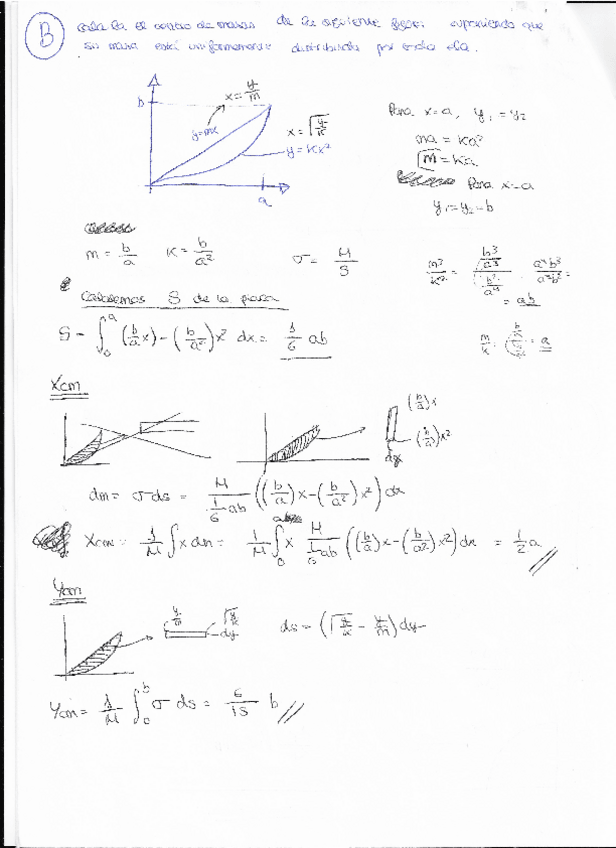 B
el centro de masas de la siguiente figura suponiendo que
su masa está uniformemente distribuida por toda ella.
b
x = y/m
y=mx
x = √(y/k)
y = kx²
a
Para x=a, y₁ = y₂
ma = ka²
m = ka
Para x=a
y₁=y₂=b
m = b/a k = b/a² σ = M/S
m³/k² = (b³/a³)/(b²/a⁴) · a⁴b³/a³b² =
= ab
Calculemos S de la placa
S = ∫₀ᵃ (b/a x) - (b/a²) x² dx = 1/6 ab
m/k = = a
Xcm
(b/a)x
(b/a²)x²
dx
dm = σds = M/(1/6 ab) ((b/a)x - (b/a²)x²) dx
Xcm = 1/M ∫ x dm = 1/M ∫₀ᵃ x M/(1/6 ab) ((b/a)x - (b/a²)x²) dx = 1/2 a
Ycm
y/m √(y/k)
dy
ds = (√(y/k) - y/m) dy
Ycm = 1/M ∫₀ᵇ σ ds = 6/15 b